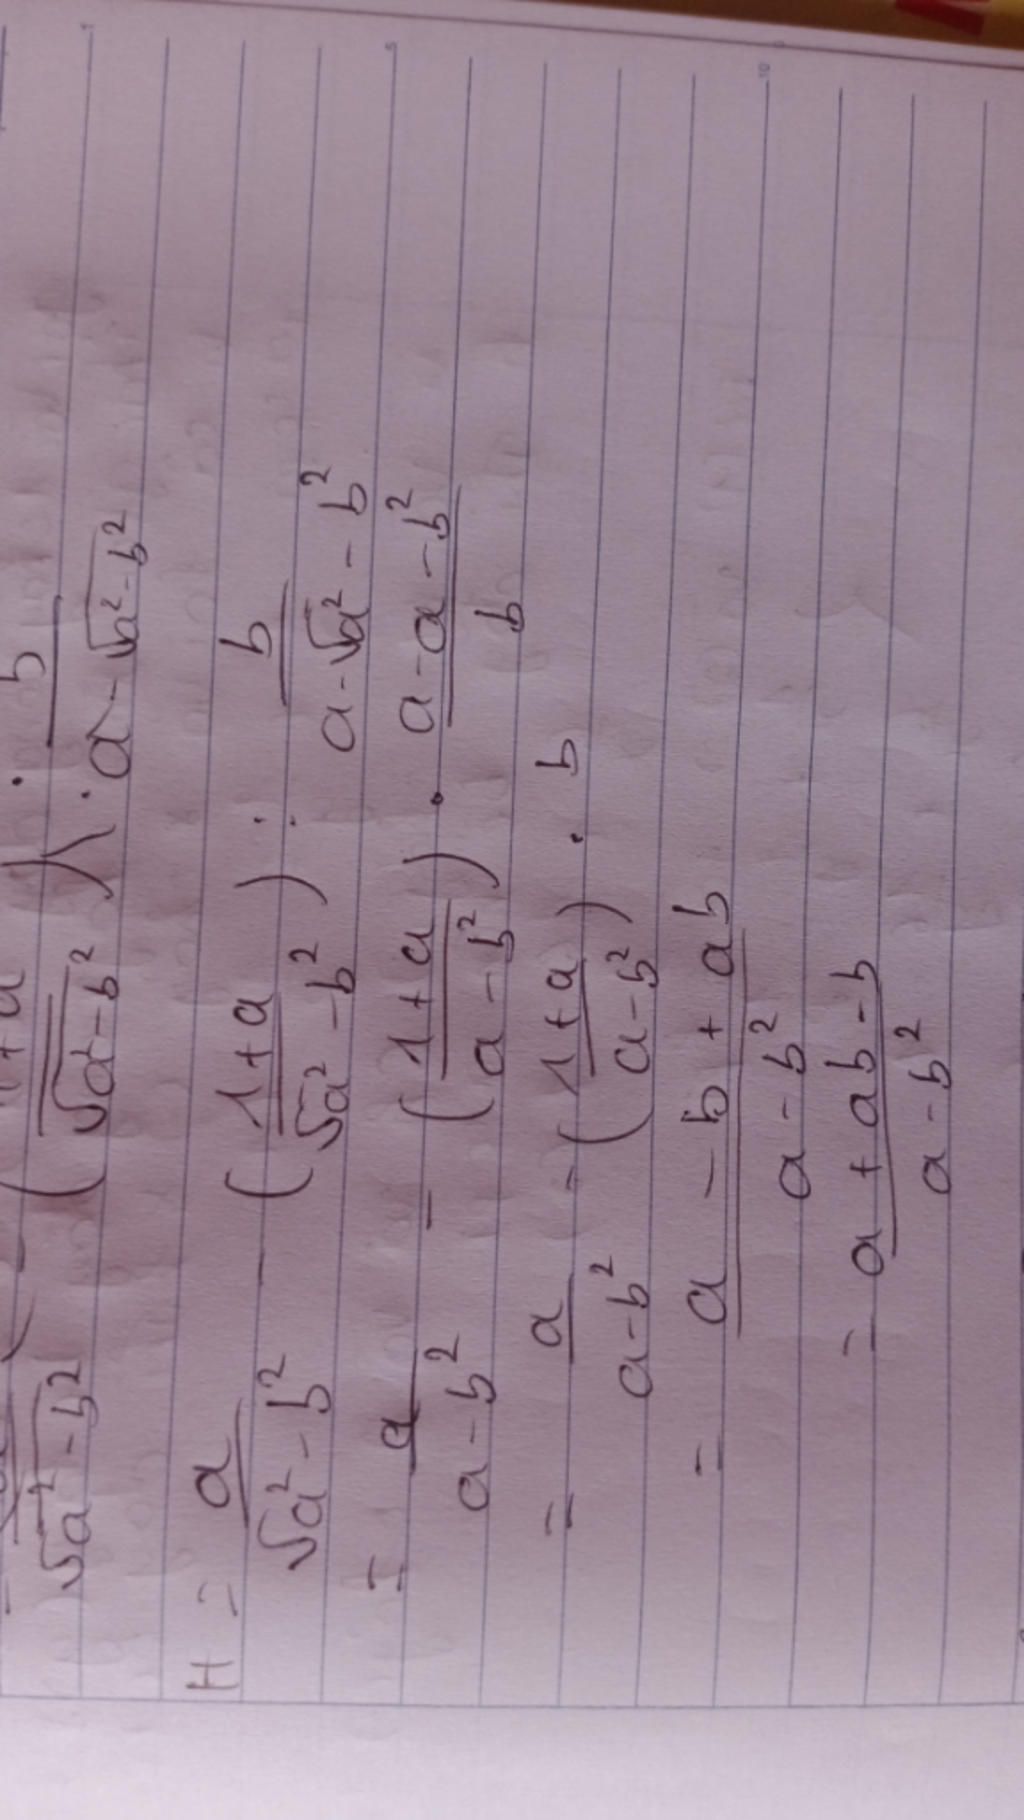 √a² - b²    (√a² - b²) : a - √a² - b²
H = a/√a² - b² - (1+a/√a² - b²) : b/a - √a² - b²
= a/a - b² - (1+a/a - b²) · a - a - b²/b
= a/a - b² - (1+a/a - b²) · b
= a - b + ab/a - b²
= a + ab - b/a - b²